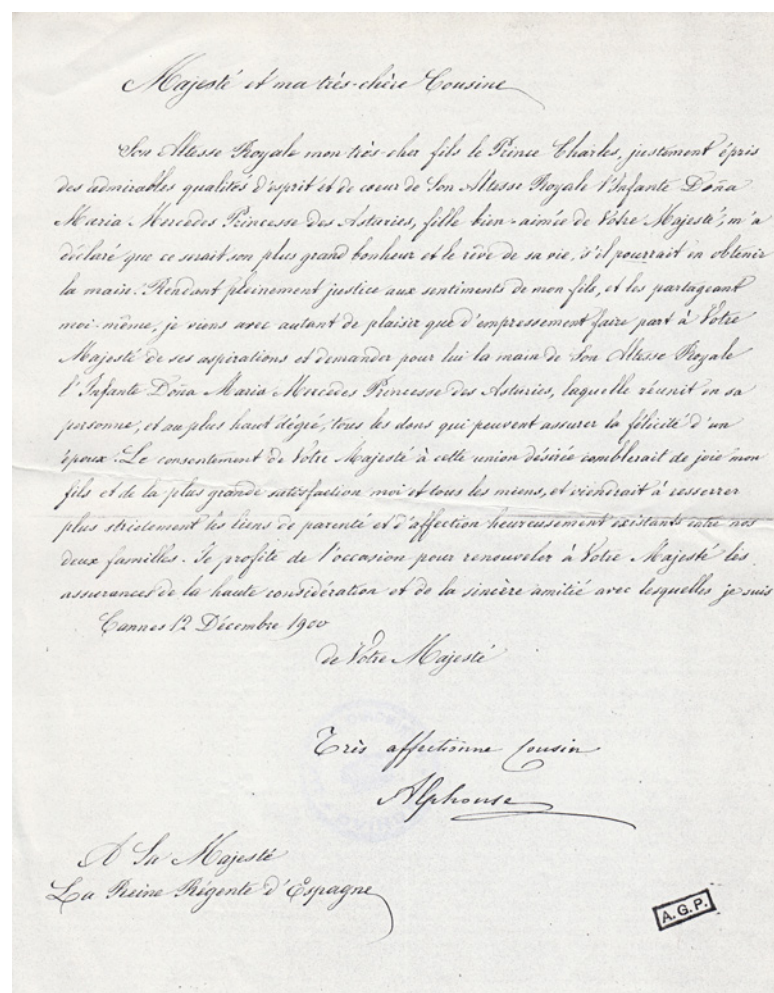 Majesté et ma très-chère Cousine
Son Altesse Royale mon très-cher fils le Prince Charles, justement épris
des admirables qualités d'esprit et de coeur de Son Altesse Royale l'Infante Doña
Maria Mercédes Princesse des Asturies, fille bien-aimée de Votre Majesté, m'a
déclaré que ce serait son plus grand bonheur et le rêve de sa vie, s'il pourrait en obtenir
la main. Rendant pleinement justice aux sentiments de mon fils, et les partageant
moi-même, je viens avec autant de plaisir que d'empressement faire part à Votre
Majesté de ses aspirations et demander pour lui la main de Son Altesse Royale
l'Infante Doña Maria Mercédes Princesse des Asturies, laquelle réunit en sa
personne, et au plus haut dégré, tous les dons qui peuvent assurer la félicité d'un
époux. Le consentement de Votre Majesté à cette union désirée comblerait de joie mon
fils et de la plus grande satisfaction moi et tous les miens, et viendrait à resserrer
plus strictement les liens de parenté et d'affection heureusement existants entre nos
deux familles. Je profite de l'occasion pour renouveler à Votre Majesté les
assurances de la haute considération et de la sincère amitié avec lesquelles je suis
Cannes 12 Décembre 1900
de Votre Majesté
Très affectionné Cousin
Alphonse
A Sa Majesté
La Reine Régente d'Espagne
A.G.P.